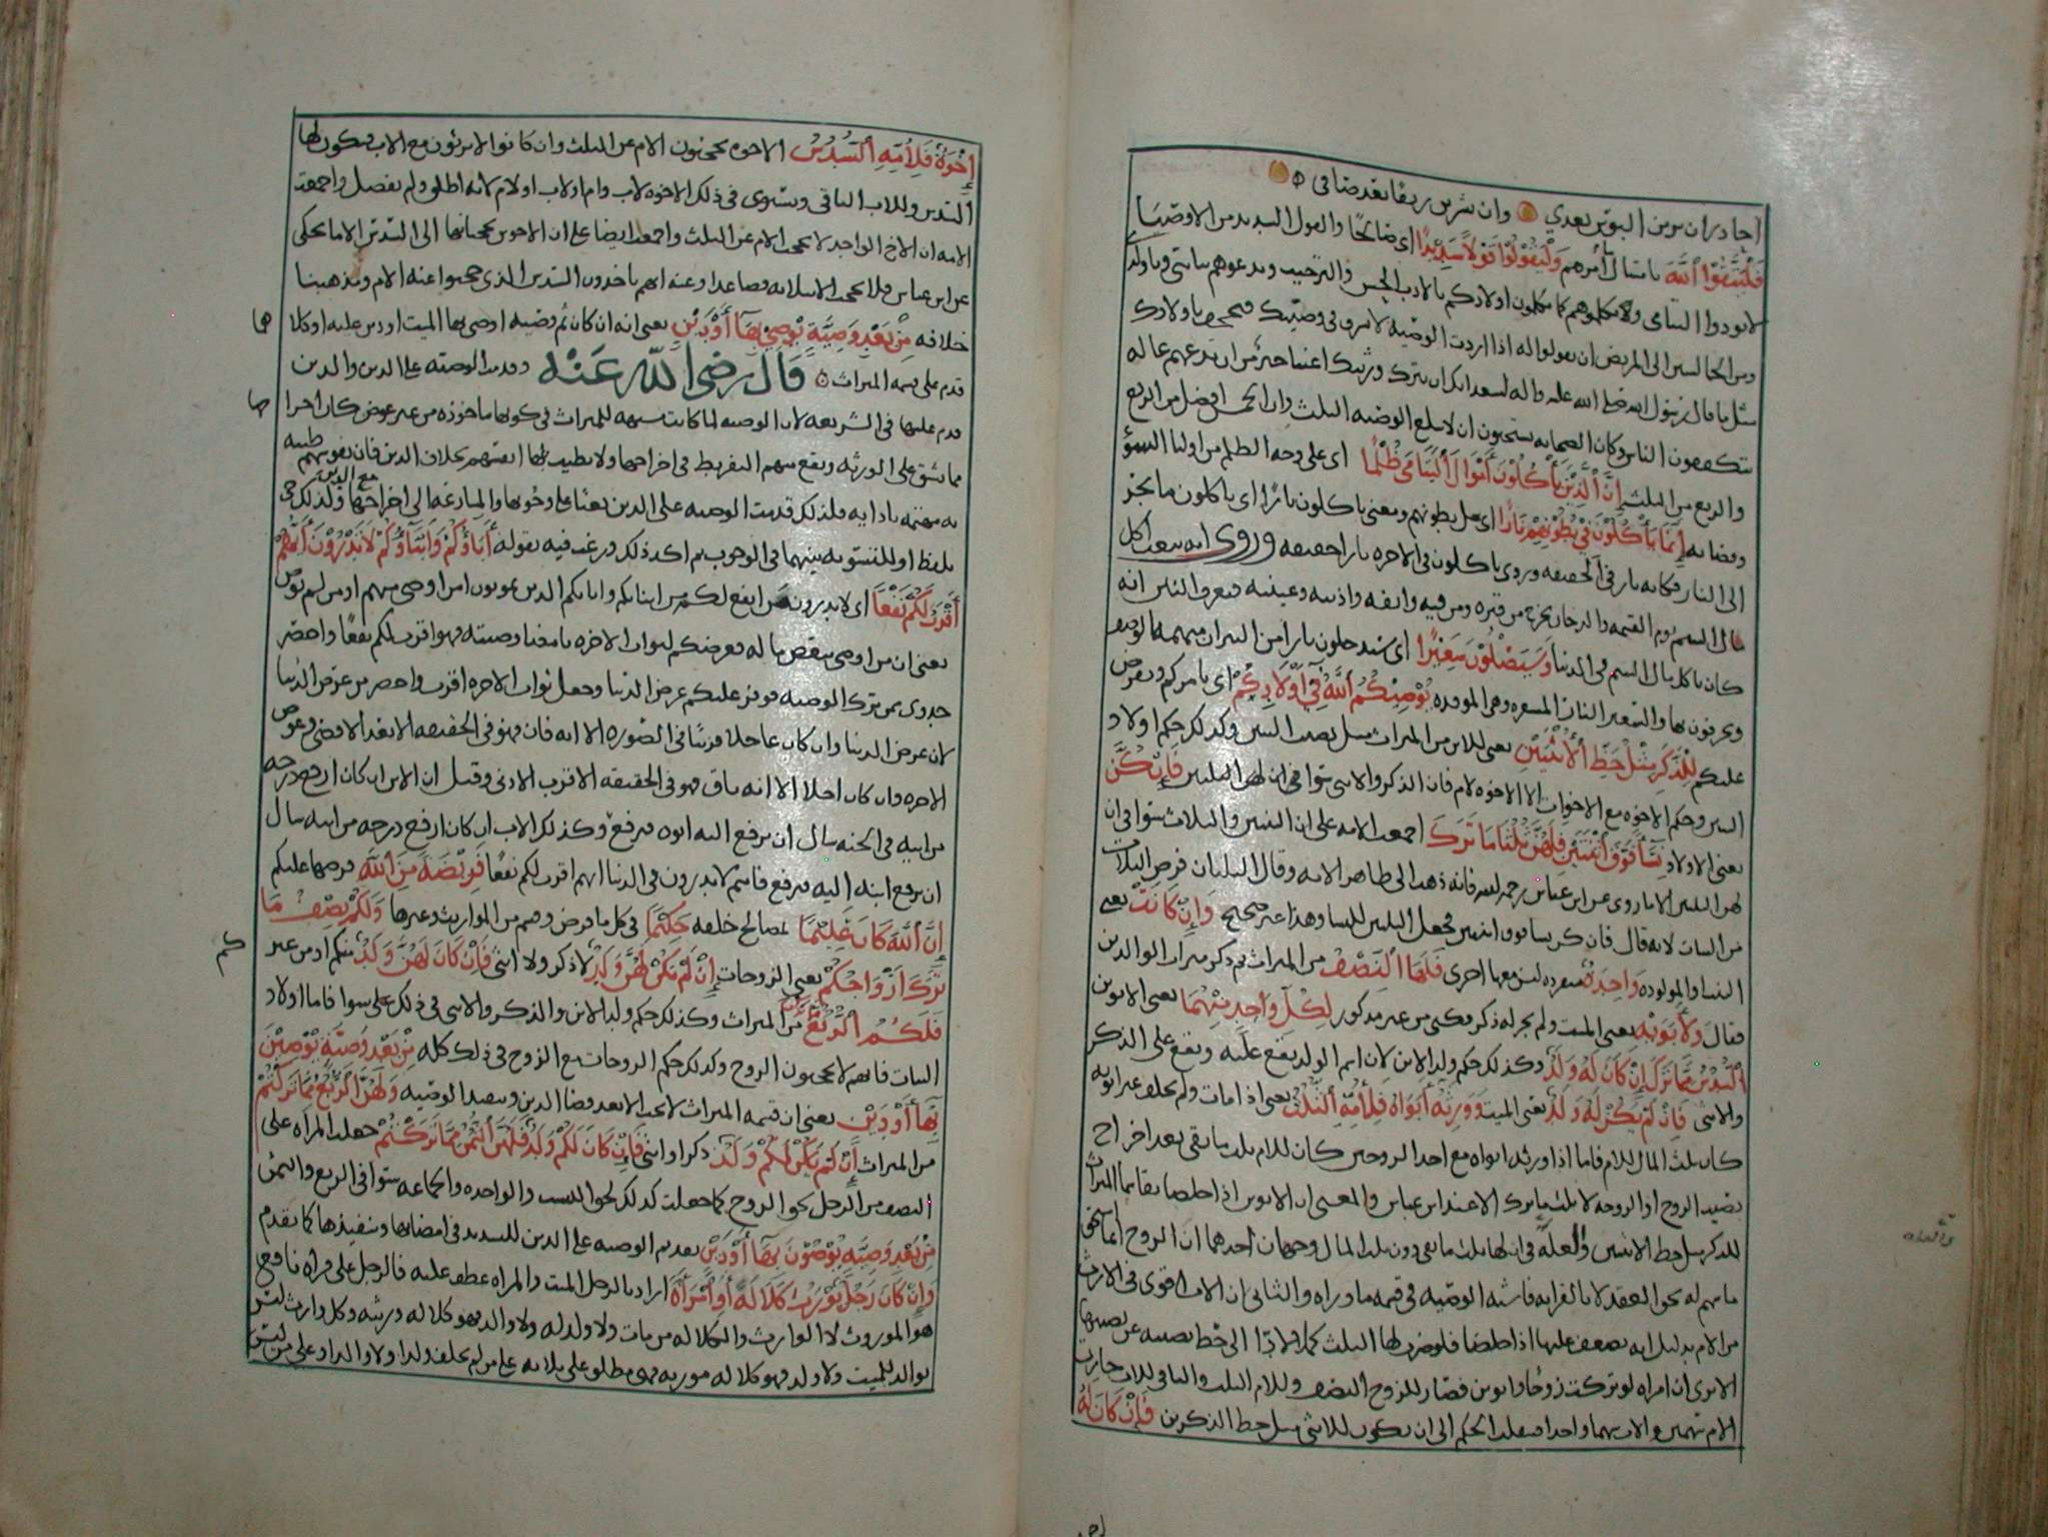 احاذر ان يرين البؤس بعدي وان يشربن رنقا بعد صافي
فَلْيَتَّقُوا اللَّهَ بامتثال أمرهم وَلْيَقُولُوا قَوْلًا سَدِيدًا اى صالحًا والقول السديد من الاوصيا
لا يؤذوا اليتامى ولا يكلموهم كما يكلمون اولادكم بالادب الحسن والترحيب ويدعوهم بيا بنى ويا ولدى
ومن الجالسين الى المريض ان يقولوا له اذا اردت الوصيه لا تسرف فى وصيتك فتجحف باولادك
مثل ما قال رسول الله صلى الله عليه واله لسعد انك ان تترك ورثتك اغنيا خير من ان تدعهم عاله
يتكففون الناس وكان الصحابه يستحبون ان لا تبلغ الوصيه الثلث وان الخمس افضل من الربع
والربع من الثلث إِنَّ الَّذِينَ يَأْكُلُونَ أَمْوَالَ الْيَتَامَى ظُلْمًا اى على وجه الظلم من اوليا السوء
وقضاته إِنَّمَا يَأْكُلُونَ فِي بُطُونِهِمْ نَارًا اى مل بطونهم ومعنى ياكلون نارًا اى ياكلون ما يجر
الى النار فكانه نار فى الحقيقه وروى ياكلون فى الاخره نارا حقيقه وروى انه يبعث اكل
مال اليتيم يوم القيمه والدخان يخرج من قبره ومن فيه وانفه واذنيه وعينيه فيعرف الناس انه
كان ياكل مال اليتيم فى الدنيا وَسَيَصْلَوْنَ سَعِيرًا اى سيدخلون نارا من النيران مبهمه الوصف
ويحرقون بها والسعير النار المسعره وهى الموقده يُوصِيكُمُ اللَّهُ فِي أَوْلَادِكُمْ اى يامركم ويفرض
عليكم لِلذَّكَرِ مِثْلُ حَظِّ الْأُنْثَيَيْنِ يعنى للابن من الميراث مثل نصيب البنتين وكذلك حكم اولاد
البنين وحكم الاخوه مع الاخوات الا الاخوه لام فان الذكر والانثى سوا فى ان لهم الثلثين فَإِنْ كُنَّ
يعنى الاولاد نِسَاءً فَوْقَ اثْنَتَيْنِ فَلَهُنَّ ثُلُثَا مَا تَرَكَ اجمعت الامه على ان الثنتين والثلاث سوا فى ان
لهن الثلثين الا ما روى عن ابن عباس رحمه الله فانه ذهب الى ظاهر الايه وقال الثلثان فرض الثلاث
من البنات لانه قال فان كن نسا فوق اثنتين فجعل الثلثين للنسا وهذا غير صحيح وَإِنْ كَانَتْ يعنى
النسا والمولوده وَاحِدَةً منفرده ليس معها اخرى فَلَهَا النِّصْفُ من الميراث ثم ذكر ميراث الوالدين
فقال وَلِأَبَوَيْهِ يعنى الميت ولم يجر له ذكر فكنى عن غير مذكور لِكُلِّ وَاحِدٍ مِنْهُمَا يعنى الابوين
السُّدُسُ مِمَّا تَرَكَ إِنْ كَانَ لَهُ وَلَدٌ وكذلك حكم ولد الابن لان اسم الولد يقع عليه ويقع على الذكر
والانثى فَإِنْ لَمْ يَكُنْ لَهُ وَلَدٌ يعنى الميت وَوَرِثَهُ أَبَوَاهُ فَلِأُمِّهِ الثُّلُثُ يعنى اذا مات ولم يخلف غير ابويه
كان ثلث المال للام فاما اذا ورثه ابواه مع احد الزوجين كان للام ثلث ما بقى بعد اخراج
نصيب الزوج او الزوجه لا ثلث ما ترك الا عند ابن عباس والمعنى ان الابوين اذا خلصا تقاسما الميراث
للذكر مثل حظ الانثيين والعله فى ان لها ثلث ما بقى دون ثلث المال وجهان احدهما ان الزوج انما استحق
ما يسهم له بحق العقد لا بالقرابه فاشبه الوصيه فى قسمه ما وراه والثانى ان الاب اقوى فى الارث
من الام بدليل انه يضعف عليها اذا خلصا فلو ضرب لها الثلث كملا لادّا الى حط نصيبه عن نصيبها
الا ترى ان امراه لو تركت زوجًا وابوين فصار للزوج النصف وللام الثلث والباقى للاب حازت
الام سهمين والاب سهما واحدا فينقلب الحكم الى ان يكون للانثى مثل حظ الذكرين فَإِنْ كَانَ لَهُ
إِخْوَةٌ فَلِأُمِّهِ السُّدُسُ الاخوه يحجبون الام عن الثلث وان كانوا لا يرثون مع الاب فيكون لها
السدس وللاب الباقى ويستوى فى ذلك الاخوه لاب وام او لاب او لام لانه اطلق ولم يفصل واجمعت
الامه ان الاخ الواحد لا يحجب الام عن الثلث واجمعت ايضا على ان الاخوين يحجبانها الى السدس الا ما يحكى
عن ابن عباس فلا يحجب الا بثلاثه فصاعدا وعنه انهم ياخذون السدس الذى حجبوا عنه الام ومذهبنا
خلافه مِنْ بَعْدِ وَصِيَّةٍ يُوصِي بِهَا أَوْ دَيْنٍ يعنى انه ان كان ثم وصيه اوصى بها الميت او دين عليه او كلاهما
قدم على قسمه الميراث قال رضى الله عنه وقدمت الوصيه على الدين والدين
قدم عليها فى الشريعه لان الوصيه لما كانت شبيهه للميراث فى كونها ماخوذه من غير عوض كان اخراجها
مما يشق على الورثه ويقع منهم التفريط فى اخراجها ولا تطيب بها انفسهم بخلاف الدين فان نفوسهم طيبه
به مهتمه بادايه فلذلك قدمت الوصيه على الدين بعثا على وجوبها والمسارعه الى اخراجها مع الدين ولذلك جى
بلفظ او للتسويه بينهما فى الوجوب ثم اكد ذلك ورغب فيه بقوله آبَاؤُكُمْ وَأَبْنَاؤُكُمْ لَا تَدْرُونَ أَيُّهُمْ
أَقْرَبُ لَكُمْ نَفْعًا اى لا تدرون من انفع لكم من ابنائكم وابائكم الذين يموتون امن اوصى منهم او من لم يوص
يعنى ان من اوصى ببعض ماله فعرضكم لثواب الاخره بامضا وصيته فهو اقرب لكم نفعًا واحضر
جدوى ممن ترك الوصيه فوفر عليكم عرض الدنيا وجعل ثواب الاخره اقرب واحضر من عرض الدنيا
لان عرض الدنيا وان كان عاجلا قريبًا فى الصوره الا انه فان فهو فى الحقيقه الابعد الاقصى وعوض
الاخره وان كان اجلا الا انه باق فهو فى الحقيقه الاقرب الادنى وقيل ان الابن ان كان ارفع درجه
من ابيه فى الجنه سال ان يرفع اليه ابوه فيرفع وكذلك الاب ان كان ارفع درجه من ابنه سال
ان يرفع ابنه اليه فيرفع فانتم لا تدرون فى الدنيا ايهم اقرب لكم نفعًا فَرِيضَةً مِنَ اللَّهِ فرضها عليكم
إِنَّ اللَّهَ كَانَ عَلِيمًا بمصالح خلقه حَكِيمًا فى كل ما فرض وقسم من المواريث وغيرها وَلَكُمْ نِصْفُ مَا
تَرَكَ أَزْوَاجُكُمْ يعنى الزوجات إِنْ لَمْ يَكُنْ لَهُنَّ وَلَدٌ لا ذكر ولا انثى فَإِنْ كَانَ لَهُنَّ وَلَدٌ منكم او من غيركم
فَلَكُمُ الرُّبُعُ مِمَّا تَرَكْنَ من الميراث وكذلك حكم ولد الابن والذكر والانثى فى ذلك على سوا فاما اولاد
البنات فانهم لا يحجبون الزوج وكذلك حكم الزوجات مع الزوج فى ذلك كله مِنْ بَعْدِ وَصِيَّةٍ يُوصِينَ
بِهَا أَوْ دَيْنٍ يعنى ان قسمه الميراث لا تجب الا بعد قضا الدين وتنفيذ الوصيه وَلَهُنَّ الرُّبُعُ مِمَّا تَرَكْتُمْ
من الميراث إِنْ لَمْ يَكُنْ لَكُمْ وَلَدٌ ذكرا او انثى فَإِنْ كَانَ لَكُمْ وَلَدٌ فَلَهُنَّ الثُّمُنُ مِمَّا تَرَكْتُمْ جعلت المراه على
النصف من الرجل بحق الزوج كما جعلت كذلك بحق النسب والواحده والجماعه سوا فى الربع والثمن
مِنْ بَعْدِ وَصِيَّةٍ تُوصُونَ بِهَا أَوْ دَيْنٍ تقديم الوصيه على الدين للتشديد فى امضائها وتنفيذها كما تقدم
وَإِنْ كَانَ رَجُلٌ يُورَثُ كَلَالَةً أَوِ امْرَأَةٌ اراد بالرجل الميت والمراه عطف عليه فالرجل على قراه نافع
هو الموروث لا الوارث والكلاله من مات ولا ولد له ولا والد فهو كلاله ورثته وكل وارث ليس
بوالد للميت ولا ولد فهو كلاله موروثه فهى مطلق على ثلاثه على من لم يخلف ولدا ولا والدا وعلى من ليس